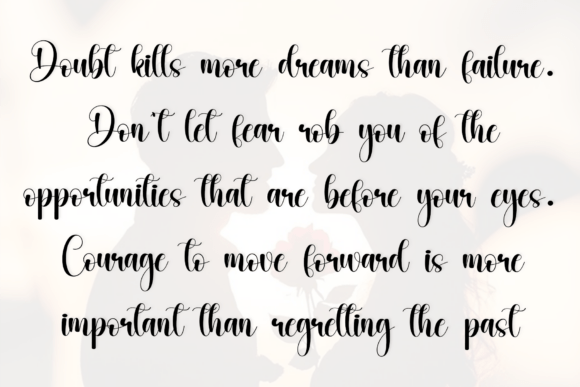 Doubt kills more dreams than failure.
Don't let fear rob you of the
opportunities that are before your eyes.
Courage to move forward is more
important than regretting the past